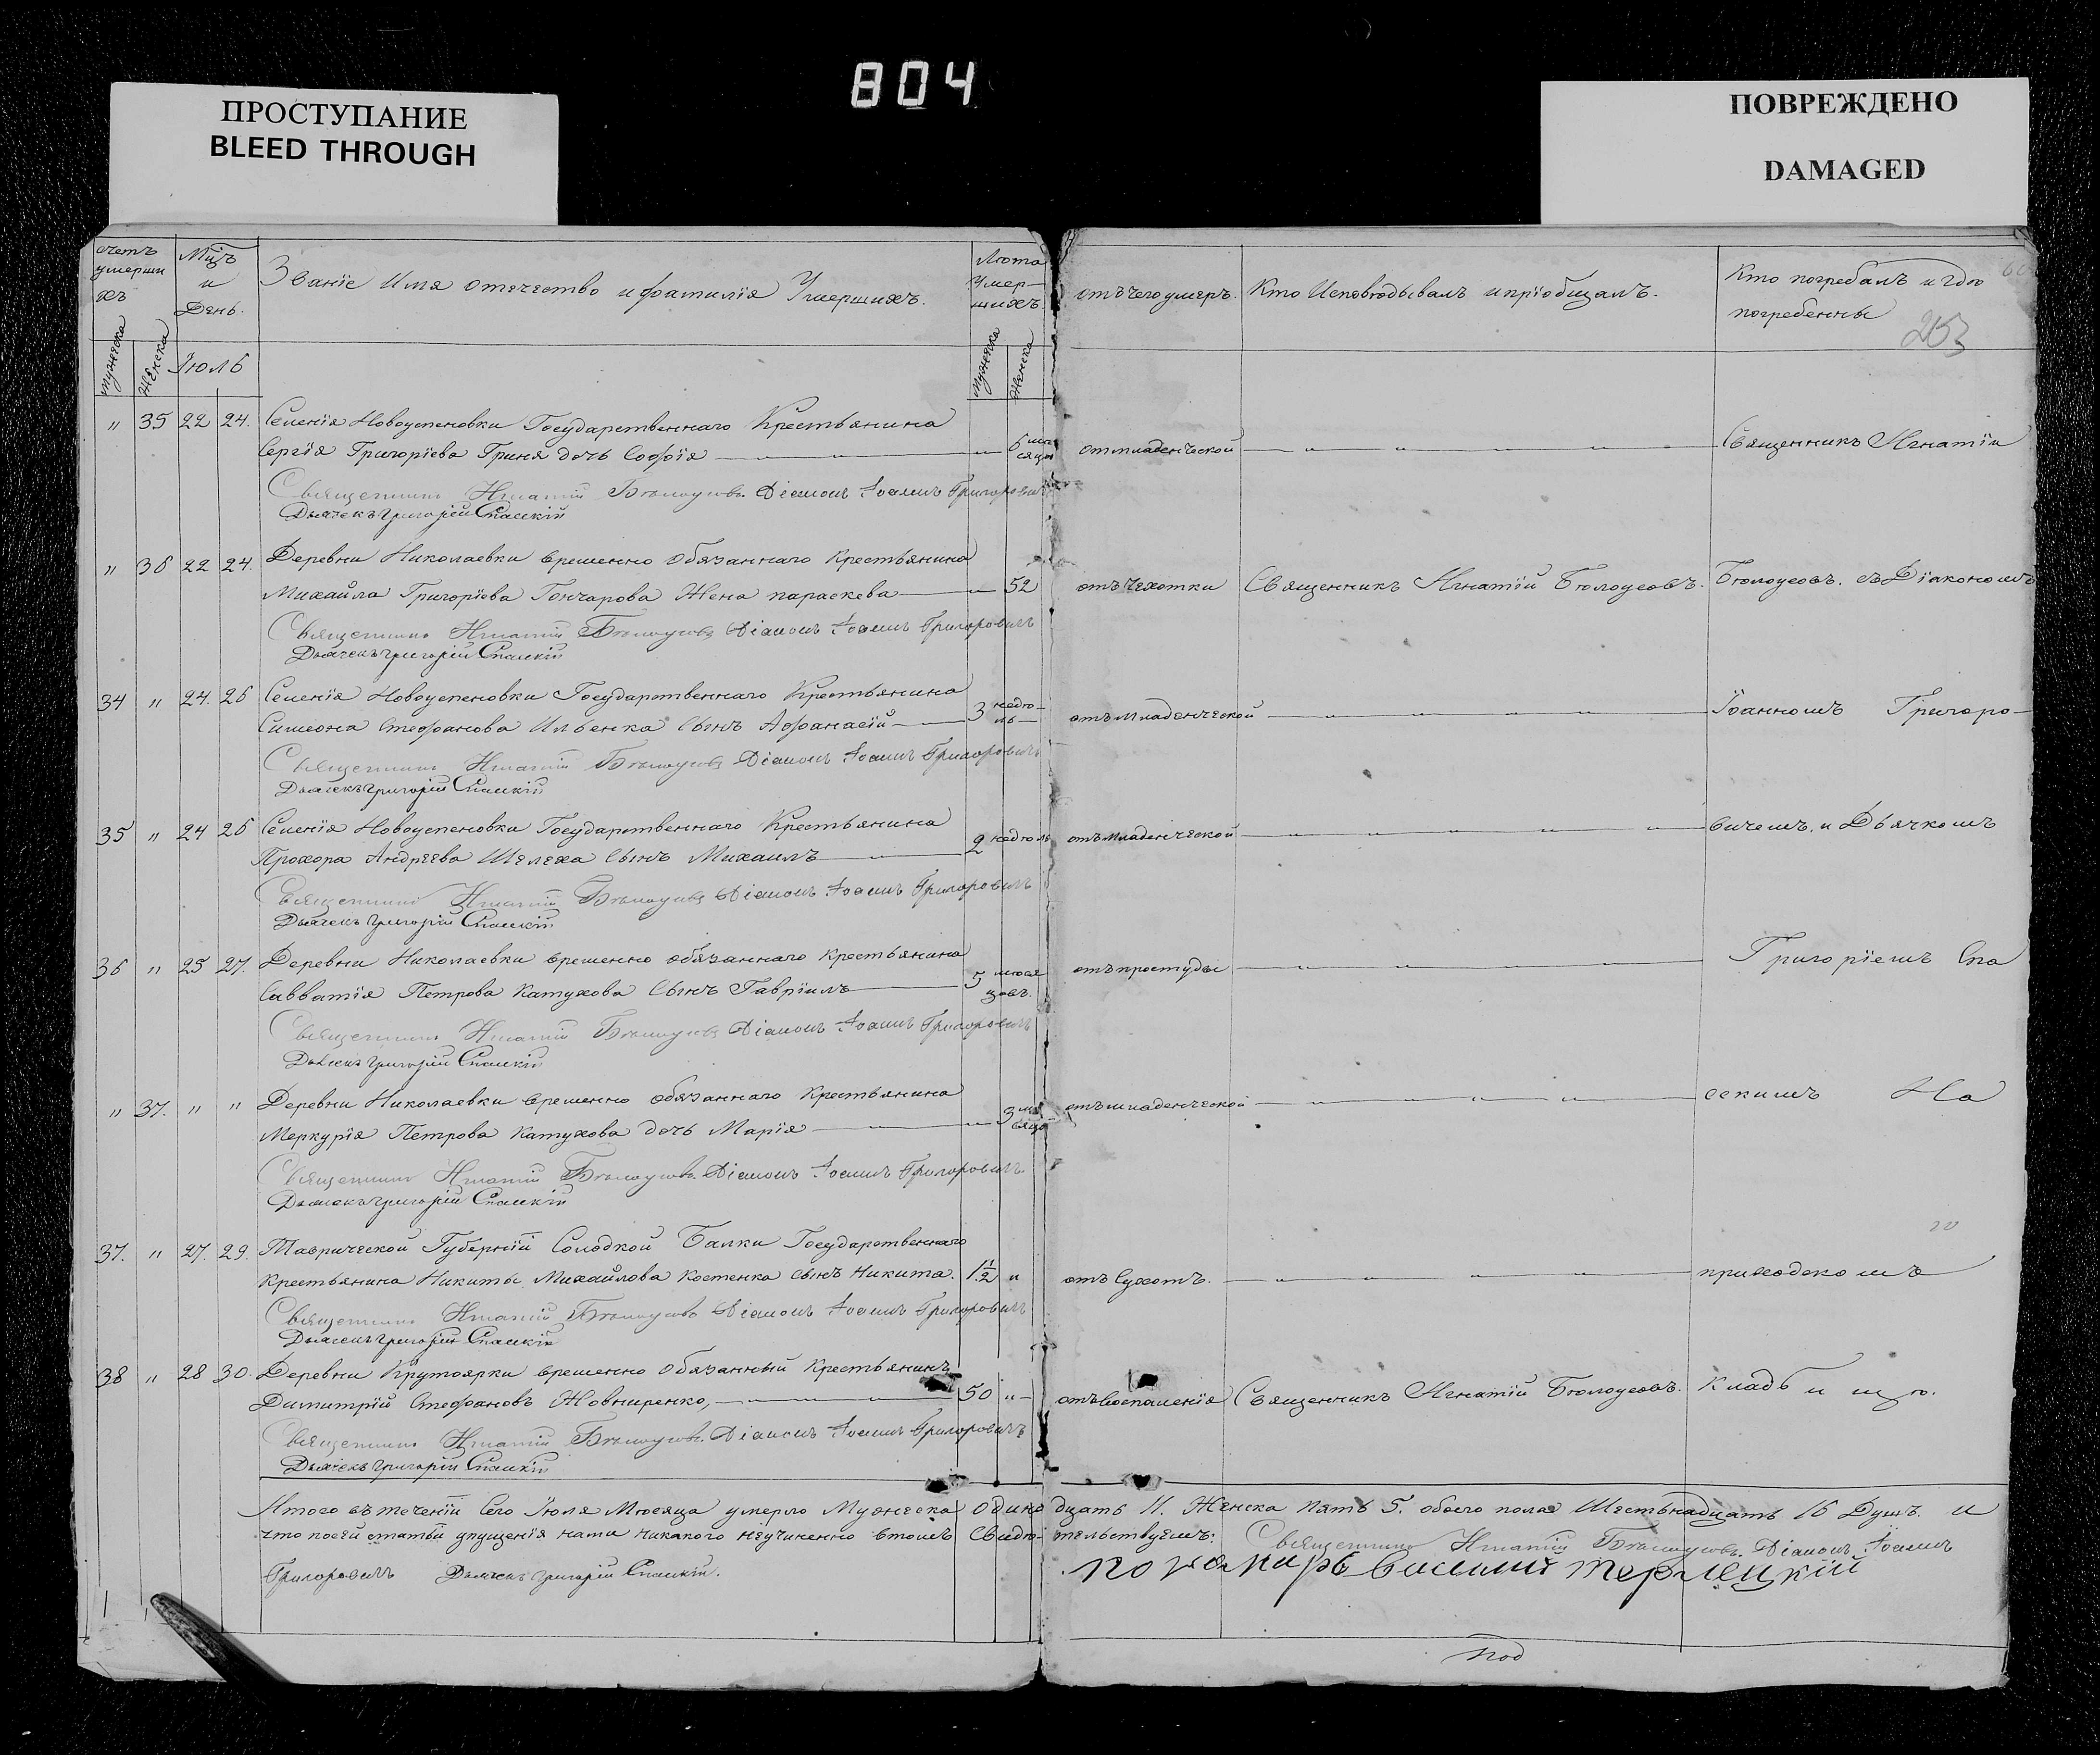 804
ПРОСТУПАНИЕ
BLEED THROUGH
ПОВРЕЖДЕНО
DAMAGED
счетъ умершихъ
Мцъ и День.
Званіе Имя отечество и фамилія Умершихъ.
Лѣта Умершихъ
отъ чего умеръ.
Кто Исповѣдывалъ и пріобщалъ.
Кто погребалъ и гдѣ погребенны
253
мужеска женска Іюль мужеска женска
" 35 22 24. Селенія Новоуспеновки Государственнаго Крестьянина
Сергія Григоріева Гриня дочь Софія — " — " — " 6 мѣсяцовъ отъ младенческой — " — " — " — " — Священникъ Игнатій
Священникъ Игнатій Бѣлоусовъ Діаконъ Іоаннъ Григоровичъ
Дьячекъ Григорій Спасскій
" 36 22 24. Деревни Николаевки временно обязаннаго крестьянина
Михайла Григоріева Гончарова Жена параскева — " 52 отъ чехотки Священникъ Игнатій Бѣлоусовъ. Бѣлоусовъ. съ Діакономъ
Священникъ Игнатій Бѣлоусовъ Діаконъ Іоаннъ Григоровичъ
Дьячекъ Григорій Спасскій
34 " 24. 26 Селенія Новоуспеновки Государственнаго Крестьянина
Симеона Стефанова Ильенка Сынъ Афанасій — 3 недѣль — отъ младенческой — " — " — " — " — Іоанномъ Григоро-
Священникъ Игнатій Бѣлоусовъ Діаконъ Іоаннъ Григоровичъ
Дьячекъ Григорій Спасскій
35 " 24 26 Селенія Новоуспеновка Государственнаго Крестьянина
Прохора Андреева Шелеха Сынъ Михаилъ — " — 2 недѣль отъ младенческой — " — " — " — " — вичемъ. и Дьячкомъ
Священникъ Игнатій Бѣлоусовъ Діаконъ Іоаннъ Григоровичъ
Дьячекъ Григорій Спасскій
36 " 25 27. Деревни Николаевки временно обязаннаго крестьянина
Савватія Петрова Катухова Сынъ Гавріилъ — 5 мѣсяцовъ. отъ простуды — " — " — " — " — Григоріемъ Спа
Священникъ Игнатій Бѣлоусовъ Діаконъ Іоаннъ Григоровичъ
Дьячекъ Григорій Спасскій
" 37. " " Деревни Николаевки временно обязаннаго крестьянина
Меркурія Петрова Катухова дочь Марія — " — " 3 мѣсяцо отъ младенческой — " — " — " — " — сскимъ На
Священникъ Игнатій Бѣлоусовъ. Діаконъ Іоаннъ Григоровичъ
Дьячекъ Григорій Спасскій
37. " 27. 29. Таврической Губерніи Солодкой Балки Государственнаго
крестьянина Никиты Михайлова Костенка сынъ Никита. 1 1/2 " отъ Сухотъ. — " — " — " — " — приходскомъ
Священникъ Игнатій Бѣлоусовъ Діаконъ Іоаннъ Григоровичъ
Дьячекъ Григорій Спасскій
38 " 28 30. Деревни Крутоярки временно обязанный крестьянинъ
Димитрій Стефановъ Жовниренко, — " — " — 50 " — отъ воспаленія Священникъ Игнатій Бѣлоусовъ. Кладбищѣ.
Священникъ Игнатій Бѣлоусовъ. Діаконъ Іоаннъ Григоровичъ
Дьячекъ Григорій Спасскій
Итого въ теченіи Сего Іюля Мѣсяца умерло Мужеска одинодцать 11. Женска пять 5. обоего пола Шестьнадцать 16 Душъ. И
что посей статьи упущенія нами никакого неучиненно втомъ Свидѣтельствуемъ: Священникъ Игнатій Бѣлоусовъ. Діаконъ Іоаннъ
Григоровичъ Дьячекъ Григорій Спасскій. пономарь Василій Терлецкій